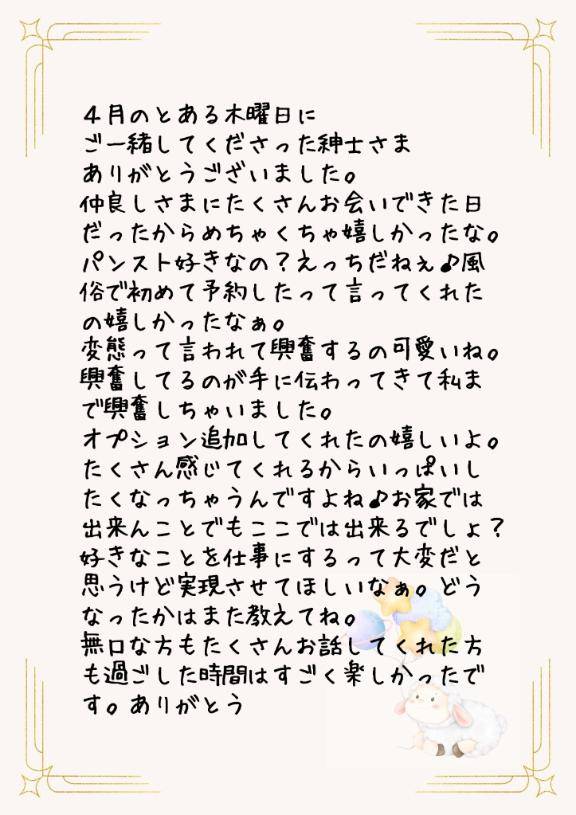 ４月のとある木曜日に
ご一緒してくださった紳士さま
ありがとうございました。
仲良しさまにたくさんお会いできた日
だったからめちゃくちゃ嬉しかったな。
パンスト好きなの？えっちだねぇ♪風
俗で初めて予約したって言ってくれた
の嬉しかったなぁ。
変態って言われて興奮するの可愛いね。
興奮してるのが手に伝わってきて私ま
で興奮しちゃいました。
オプション追加してくれたの嬉しいよ。
たくさん感じてくれるからいっぱいし
たくなっちゃうんですよね♪お家では
出来んことでもここでは出来るでしょ？
好きなことを仕事にするって大変だと
思うけど実現させてほしいなぁ。どう
なったかはまた教えてね。
無口な方もたくさんお話してくれた方
も過ごした時間はすごく楽しかったで
す。ありがとう